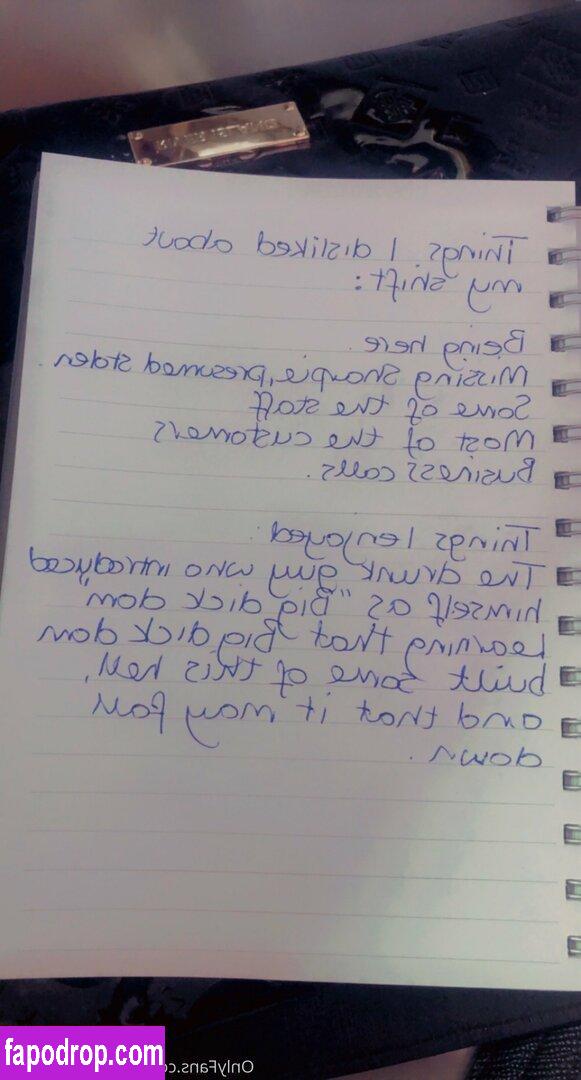 Things I disliked about
my shift:
Being here
Missing Sharpie, presumed stolen.
Some of the staff
Most of the customers
Business calls.
Things I enjoyed:
The drunk guy who introduced
himself as "Big dick dom"
Learning that Big dick dom
built some of this hell,
and that it may fall
down.
OnlyFans.c
fapodrop.com